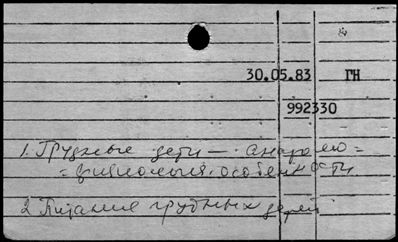 30.05.83 ГН
992330
1. Грудные дети — анатомо=
=физиология. особенности
2. Питание грудных детей